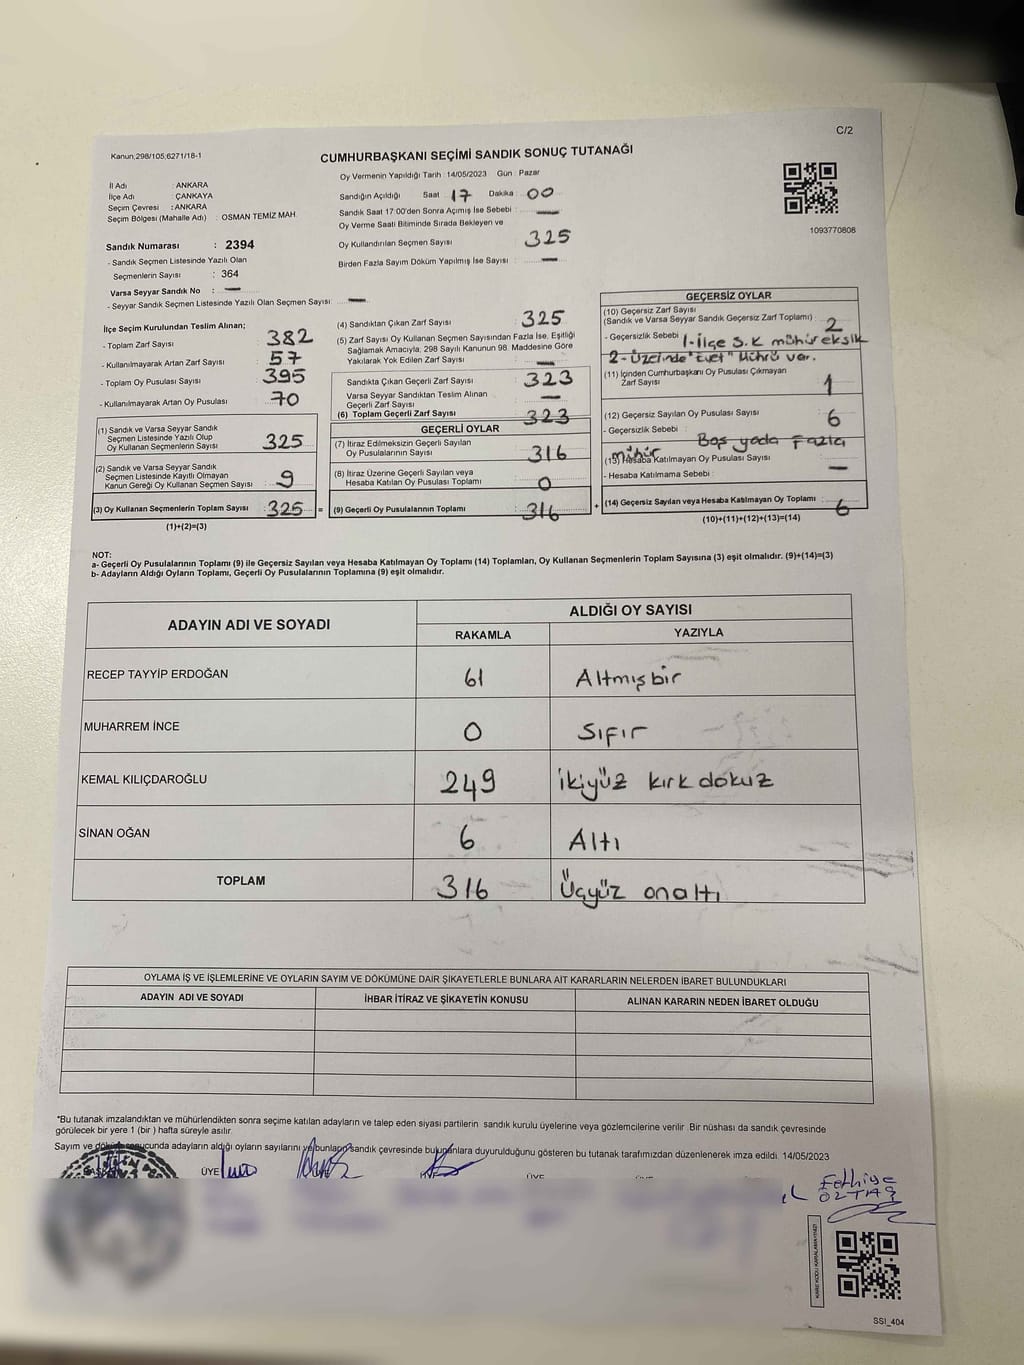 C/2
Kanun;298/105;6271/18-1
CUMHURBAŞKANI SEÇİMİ SANDIK SONUÇ TUTANAĞI
Oy Vermenin Yapıldığı Tarih :14/05/2023 Gün : Pazar
İl Adı : ANKARA
İlçe Adı : ÇANKAYA
Seçim Çevresi : ANKARA
Seçim Bölgesi (Mahalle Adı) : OSMAN TEMİZ MAH.
Sandık Numarası : 2394
- Sandık Seçmen Listesinde Yazılı Olan
Seçmenlerin Sayısı : 364
Varsa Seyyar Sandık No : —
- Seyyar Sandık Seçmen Listesinde Yazılı Olan Seçmen Sayısı: —
Sandığın Açıldığı Saat 17 Dakika : 00
Sandık Saat 17:00'den Sonra Açımış İse Sebebi : —
Oy Verme Saati Bitiminde Sırada Bekleyen ve
Oy Kullandırılan Seçmen Sayısı : 325
Birden Fazla Sayım Döküm Yapılmış İse Sayısı : —
1093770808
İlçe Seçim Kurulundan Teslim Alınan;
- Toplam Zarf Sayısı : 382
- Kullanılmayarak Artan Zarf Sayısı : 57
- Toplam Oy Pusulası Sayısı : 395
- Kullanılmayarak Artan Oy Pusulası : 70
(1) Sandık ve Varsa Seyyar Sandık
Seçmen Listesinde Yazılı Olup
Oy Kullanan Seçmenlerin Sayısı : 325
(2) Sandık ve Varsa Seyyar Sandık
Seçmen Listesinde Kayıtlı Olmayan
Kanun Gereği Oy Kullanan Seçmen Sayısı : 9
(3) Oy Kullanan Seçmenlerin Toplam Sayısı : 325 =
(1)+(2)=(3)
(4) Sandıktan Çıkan Zarf Sayısı : 325
(5) Zarf Sayısı Oy Kullanan Seçmen Sayısından Fazla İse, Eşitliği
Sağlamak Amacıyla, 298 Sayılı Kanunun 98. Maddesine Göre
Yakılarak Yok Edilen Zarf Sayısı : —
Sandıkta Çıkan Geçerli Zarf Sayısı : 323
Varsa Seyyar Sandıktan Teslim Alınan
Geçerli Zarf Sayısı : —
(6) Toplam Geçerli Zarf Sayısı : 323
GEÇERLİ OYLAR
(7) İtiraz Edilmeksizin Geçerli Sayılan
Oy Pusulasının Sayısı : 316
(8) İtiraz Üzerine Geçerli Sayılan veya
Hesaba Katılan Oy Pusulası Toplamı : 0
(9) Geçerli Oy Pusulalarının Toplamı : 316 +
GEÇERSİZ OYLAR
(10) Geçersiz Zarf Sayısı
(Sandık ve Varsa Seyyar Sandık Geçersiz Zarf Toplamı) : 2
- Geçersizlik Sebebi : 1-İlçe S.K mühür eksik
2-Üzerinde "Evet" Mührü var.
(11) İçinden Cumhurbaşkanı Oy Pusulası Çıkmayan
Zarf Sayısı : 1
(12) Geçersiz Sayılan Oy Pusulası Sayısı : 6
- Geçersizlik Sebebi : Boş yada Fazla
mühür
(13) Hesaba Katılmayan Oy Pusulası Sayısı : —
- Hesaba Katılmama Sebebi :
(14) Geçersiz Sayılan veya Hesaba Katılmayan Oy Toplamı : 6
(10)+(11)+(12)+(13)=(14)
NOT:
a- Geçerli Oy Pusulalarının Toplamı (9) ile Geçersiz Sayılan veya Hesaba Katılmayan Oy Toplamı (14) Toplamları, Oy Kullanan Seçmenlerin Toplam Sayısına (3) eşit olmalıdır. (9)+(14)=(3)
b- Adayların Aldığı Oyların Toplamı, Geçerli Oy Pusulalarının Toplamına (9) eşit olmalıdır.
ADAYIN ADI VE SOYADI ALDIĞI OY SAYISI
RAKAMLA YAZIYLA
RECEP TAYYİP ERDOĞAN 61 Altmışbir
MUHARREM İNCE 0 Sıfır
KEMAL KILIÇDAROĞLU 249 İkiyüz kırk dokuz
SİNAN OĞAN 6 Altı
TOPLAM 316 Üçyüz onaltı
OYLAMA İŞ VE İŞLEMLERİNE VE OYLARIN SAYIM VE DÖKÜMÜNE DAİR ŞİKAYETLERLE BUNLARA AİT KARARLARIN NELERDEN İBARET BULUNDUKLARI
ADAYIN ADI VE SOYADI İHBAR İTİRAZ VE ŞİKAYETİN KONUSU ALINAN KARARIN NEDEN İBARET OLDUĞU
*Bu tutanak imzalandıktan ve mühürlendikten sonra seçime katılan adayların ve talep eden siyasi partilerin sandık kurulu üyelerine veya gözlemcilerine verilir Bir nüshası da sandık çevresinde
görülecek bir yere 1 (bir ) hafta süreyle asılır.
Sayım ve döküm sonucunda adayların aldığı oyların sayılarını ve bunların sandık çevresinde bulunanlara duyurulduğunu gösteren bu tutanak tarafımızdan düzenlenerek imza edildi. 14/05/2023
ÜYE
Fethiye
ÖZTAŞ
SSI_404